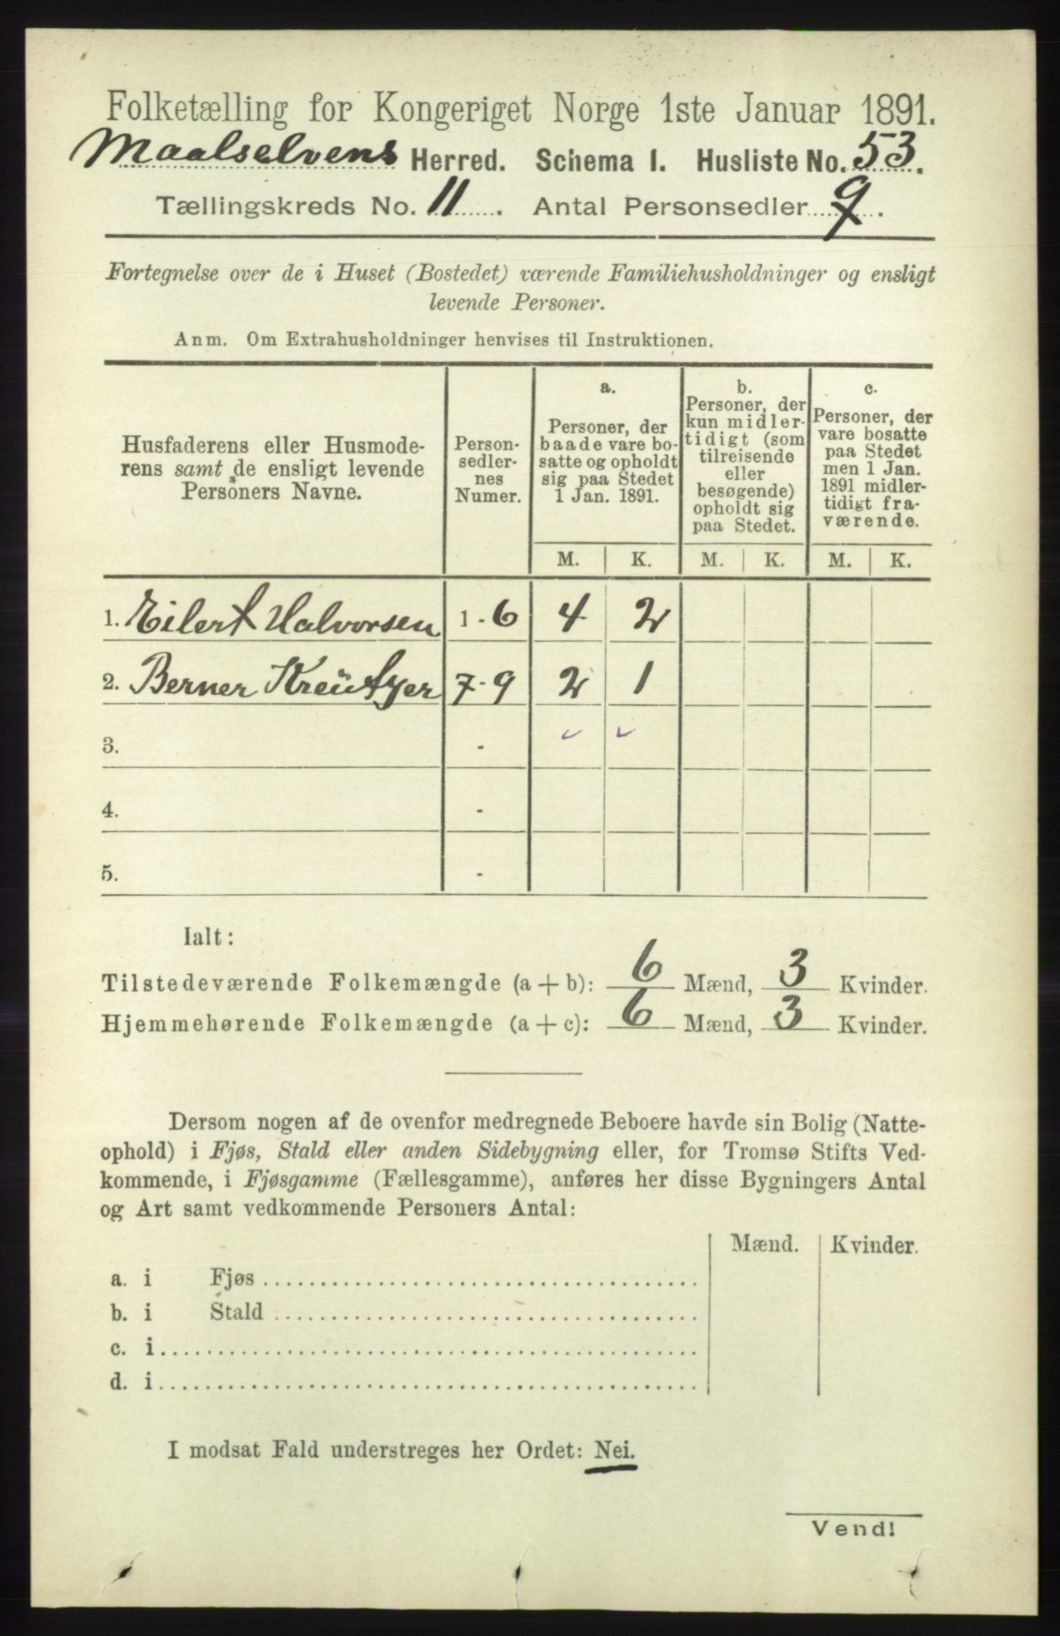 Folketælling for Kongeriget Norge 1ste Januar 1891.
Maalselvens Herred. Schema I. Husliste No. 53.
Tællingskreds No. 11. Antal Personsedler 9.
Fortegnelse over de i Huset (Bostedet) værende Familiehusholdninger og ensligt
levende Personer.
Anm. Om Extrahusholdninger henvises til Instruktionen.
Husfaderens eller Husmode-
rens samt de ensligt levende
Personers Navne.
Person-
sedler-
nes
Numer.
a.
Personer, der
baade vare bo-
satte og opholdt
sig paa Stedet
1 Jan. 1891.
b.
Personer, der
kun midler-
tidigt (som
tilreisende
eller
besøgende)
opholdt sig
paa Stedet.
c.
Personer, der
vare bosatte
paa Stedet
men 1 Jan.
1891 midler-
tidigt fra-
værende.
M. K. M. K. M. K.
1. Eilert Halvorsen 1 - 6 4 2
2. Berner Kreützer 7 - 9 2 1
3. -
4. -
5. -
Ialt:
Tilstedeværende Folkemængde (a + b): 6 Mænd, 3 Kvinder.
Hjemmehørende Folkemængde (a + c): 6 Mænd, 3 Kvinder.
Dersom nogen af de ovenfor medregnede Beboere havde sin Bolig (Natte-
ophold) i Fjøs, Stald eller anden Sidebygning eller, for Tromsø Stifts Ved-
kommende, i Fjøsgamme (Fællesgamme), anføres her disse Bygningers Antal
og Art samt vedkommende Personers Antal:
Mænd. Kvinder.
a. i Fjøs
b. i Stald
c. i
d. i
I modsat Fald understreges her Ordet: Nei.
Vend!